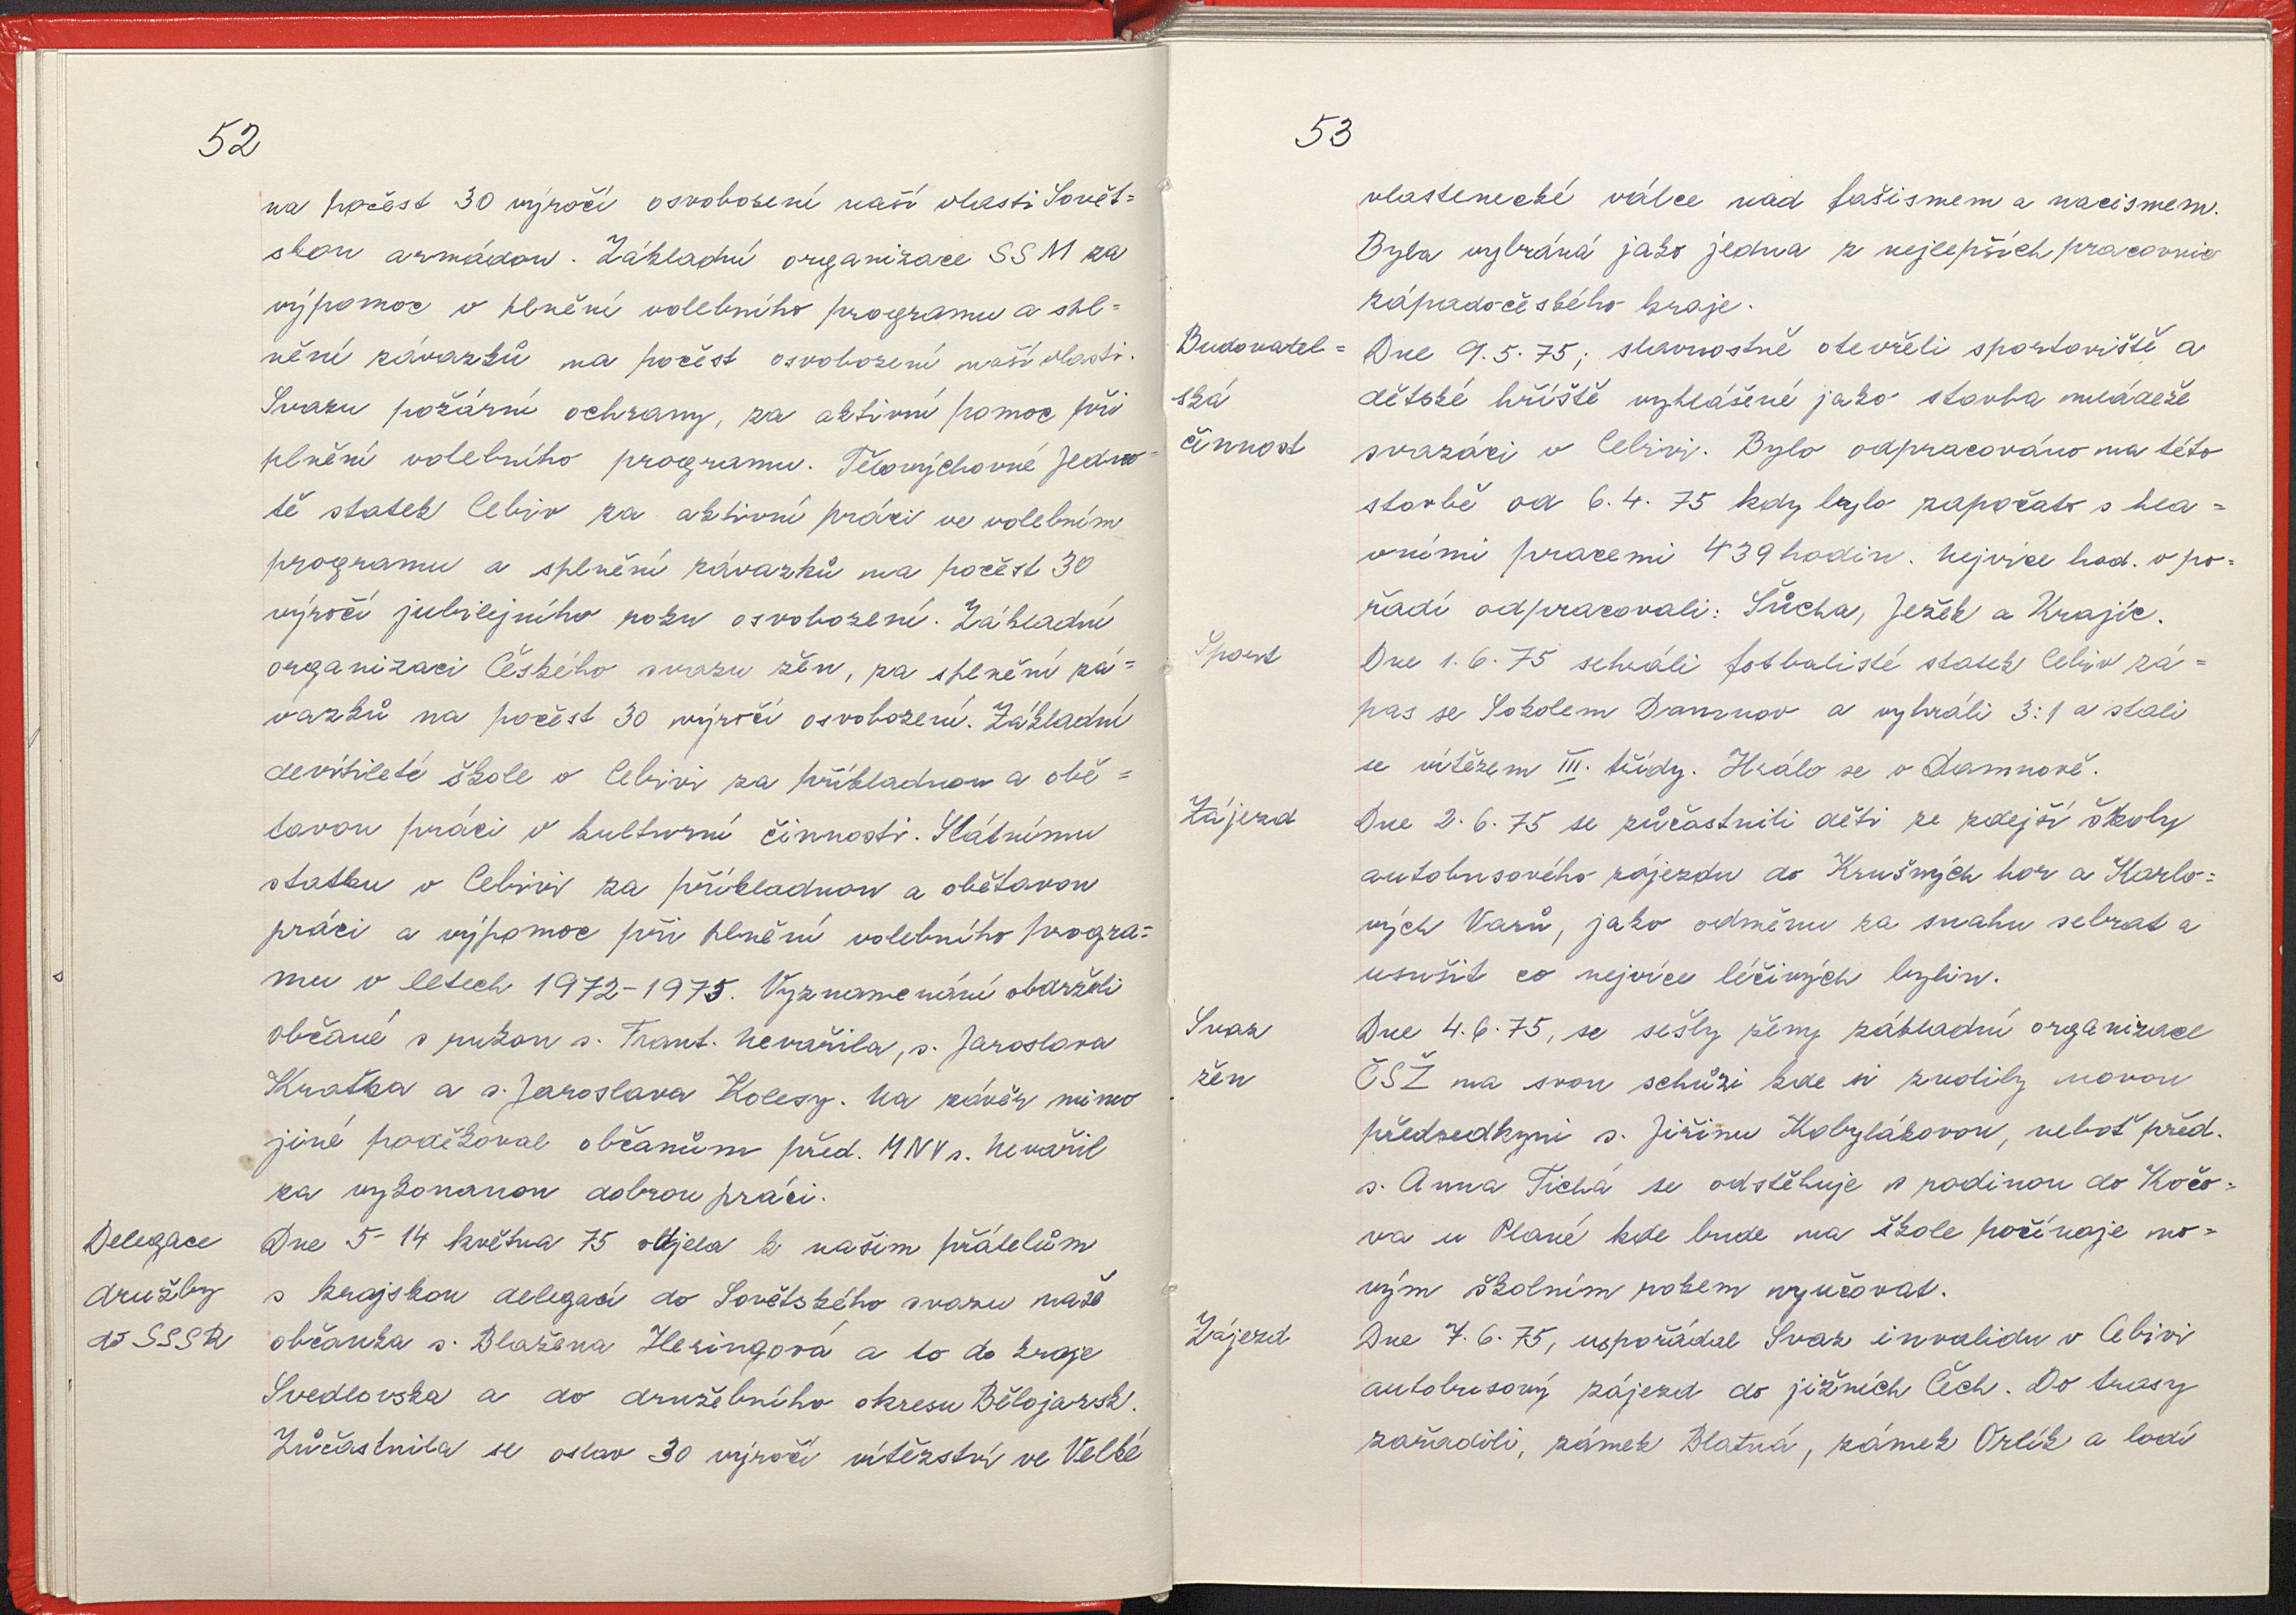 52
na počest 30 výročí osvobození naší vlasti Sovět=
skou armádou. Základní organizace SSM za
výpomoc v plnění volebního programu a spl=
nění závazků na počest osvobození naší vlasti.
Svazu požární ochrany, za aktivní pomoc při
plnění volebního programu. Tělovýchovné Jedno=
tě statek Cebiv za aktivní práci ve volebním
programu a splnění závazků na počest 30
výročí jubilejního roku osvobození. Základní
organizaci Českého svazu žen, za splnění zá=
vazků na počest 30 výročí osvobození. Základní
devítileté škole v Cebivi za příkladnou a obě=
tavou práci v kulturní činnosti. Státnímu
statku v Cebivi za příkladnou a obětavou
práci a výpomoc při plnění volebního progra=
mu v letech 1972-1975. Vyznamenání obdrželi
občané s rukou s. Frant. Nevařila, s. Jaroslava
Kraťka a s. Jaroslava Kolesy. Na závěr mimo
jiné poděkoval občanům před. MNV s. Nevařil
za vykonanou dobrou práci.
Delegace
družby
do SSSR
Dne 5-14 května 75 odjela k našim přátelům
s krajskou delegací do Sovětského svazu naše
občanka s. Blažena Heringová a to do kraje
Svedlovska a do družebního okresu Bělojarsk.
Zůčastnila se oslav 30 výročí vítězství ve Velké
53
vlastenecké válce nad fašismem a nacismem.
Byla vybráná jako jedna z nejlepších pracovnic
západočeského kraje.
Budovatel=
ská
činnost
Dne 9.5.75; slavnostně otevřeli sportoviště a
dětské hříště vyhlášené jako stavba mládeže
svazáci v Cebivi. Bylo odpracováno na této
stavbě od 6.4.75 kdy bylo započato s hla=
vními pracemi 439 hodin. Nejvíce hod. v po=
řadí odpracovali: Sůcha, Ježek a Krajíc.
Sport
Dne 1.6.75 sehráli fotbalisté statek Cebiv zá=
pas se Sokolem Damnov a vyhráli 3:1 a stali
se vítězem III. třídy. Hrálo se v Damnově.
Zájezd
Dne 2.6.75 se zůčastnili děti ze zdejší školy
autobusového zájezdu do Krušných hor a Karlo=
vých Varů, jako odměnu za snahu sebrat a
usušit co nejvíce léčivých bylin.
Svaz
žen
Dne 4.6.75, se sešly ženy základní organizace
ČSŽ na svou schůzi kde si zvolily novou
předsedkyni s. Jiřinu Kobylákovou, neboť před.
s. Anna Tichá se odstěhuje s rodinou do Kočo=
va u Plané kde bude na škole počínaje no=
vým školním rokem vyučovat.
Zájezd
Dne 7.6.75, uspořádal Svaz invalidu v Cebivi
autobusový zájezd do jižních Čech. Do trasy
zařadili, zámek Blatná, zámek Orlík a lodí